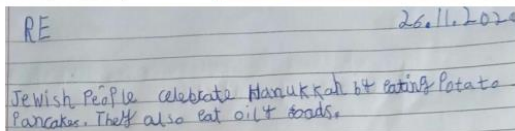 RE 26.11.202
Jewish People celebrate Hanukkah by eating Potato
Pancakes. They also eat oily foods.